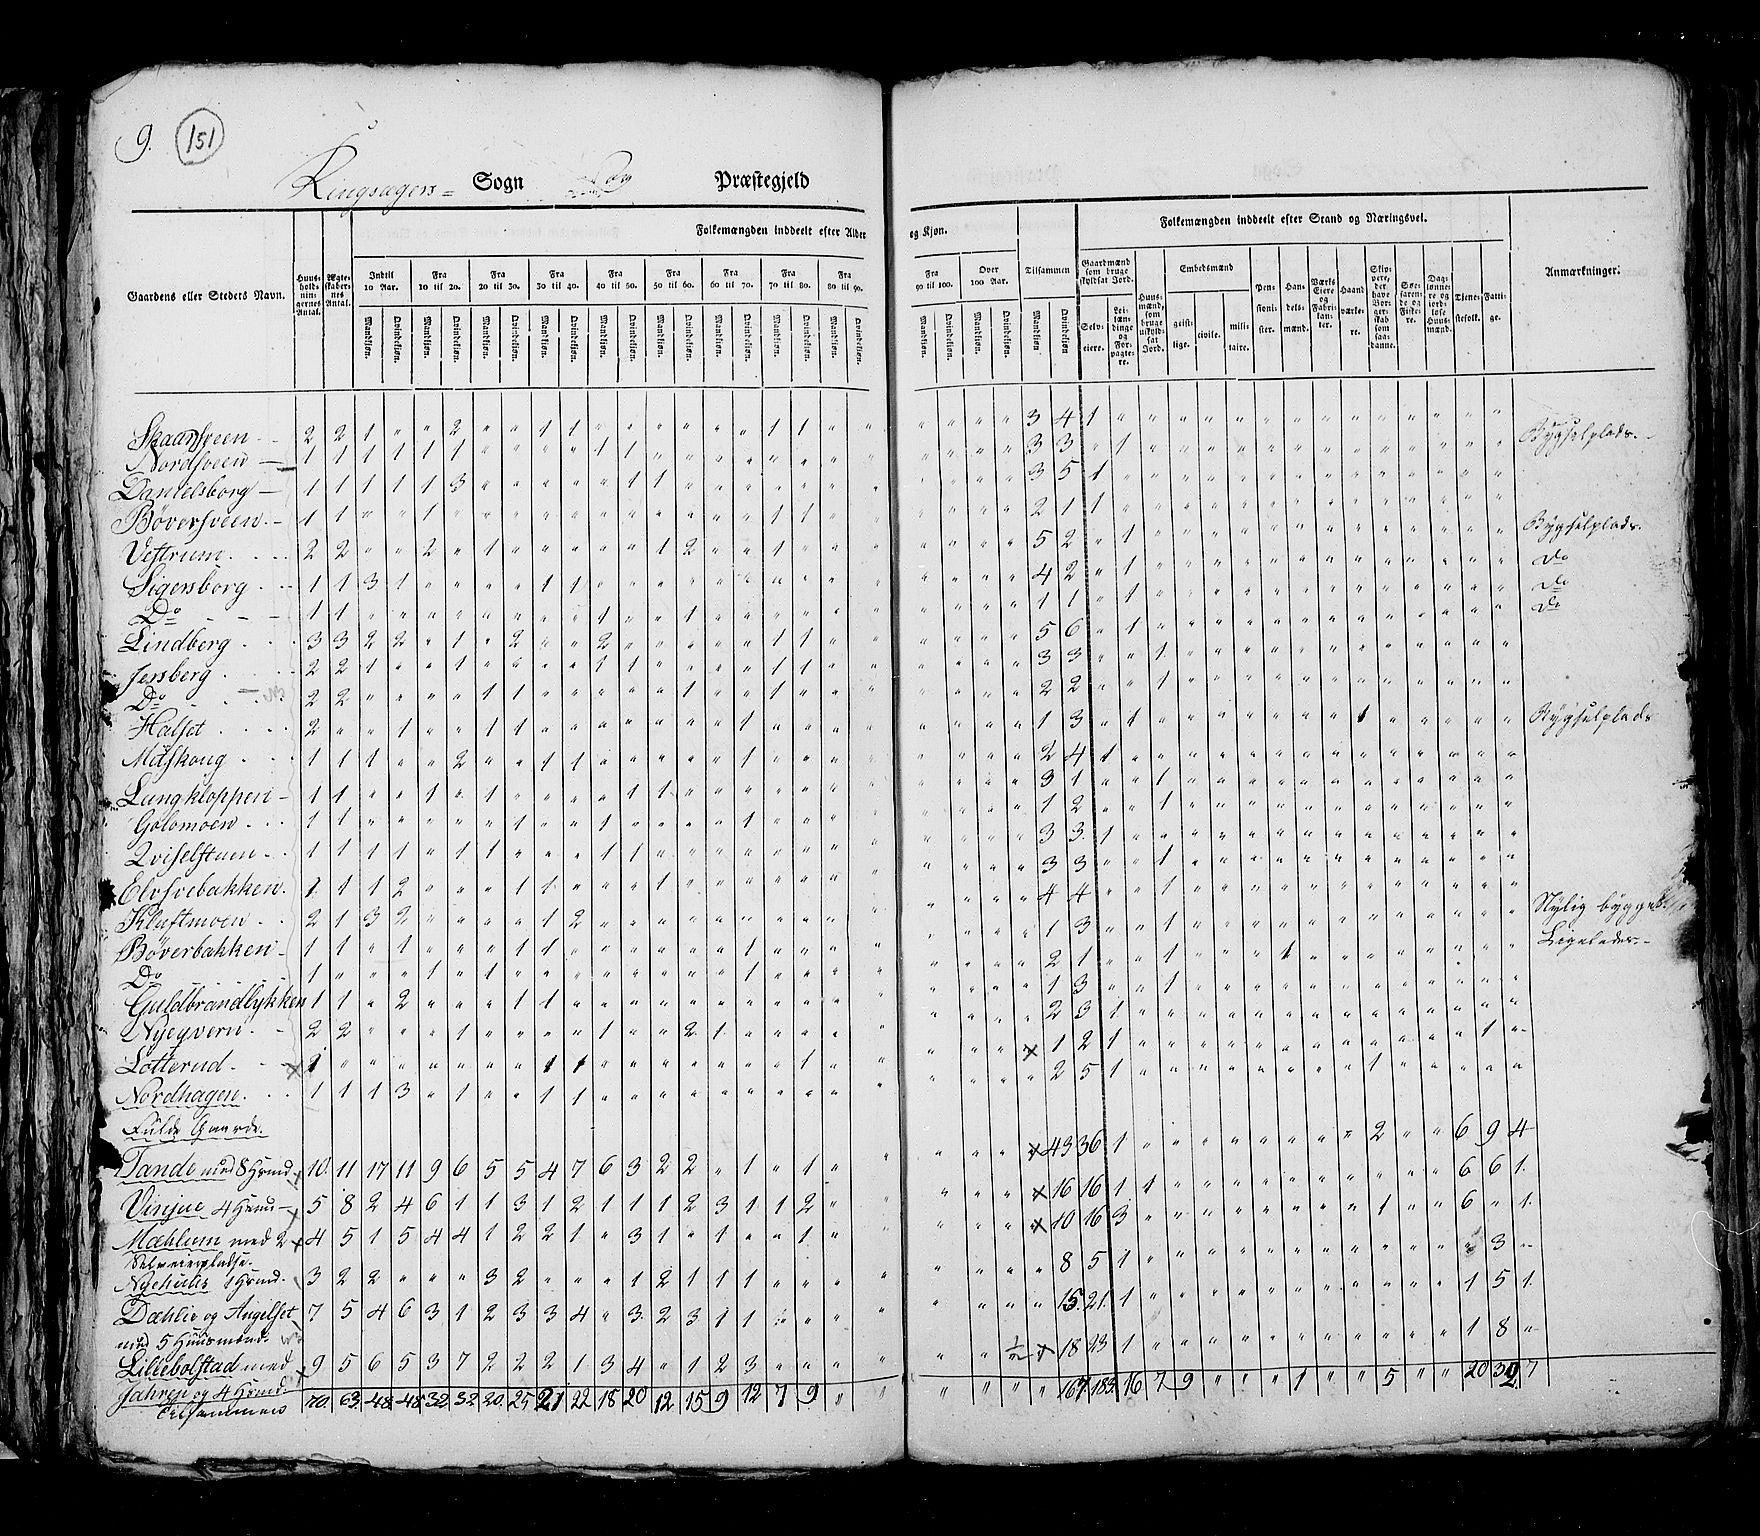 9. 151
Ringsagers= Sogn og Præstegjeld
Folkemængden inddeelt efter Alder og Kjøn.
Folkemængden inddeelt efter Stand og Næringsvei.
Gaardens eller Steders Navn.
Huusholdningernes Antal.
Ægteskabernes Antal.
Indtil 10 Aar.
Fra 10 til 20.
Fra 20 til 30.
Fra 30 til 40.
Fra 40 til 50.
Fra 50 til 60.
Fra 60 til 70.
Fra 70 til 80.
Fra 80 til 90.
Fra 90 til 100.
Over 100 Aar.
Tilsammen
Mandkjøn. Qvindekjøn.
Gaardmænd som bruge skyldsat Jord.
Selveiere.
Leilændinge og Forpagtere.
Huusmænd, som bruge uskyldsat Jord.
Embedsmænd
geistlige. civile. militaire.
Pensionister.
Handelsmænd.
Værks Eiere og Fabrikanter.
Haandværkere.
Skippere, der have Borgerskab som saadanne.
Søefarende og Fiskere.
Daglønnere og jordløse Huusmænd.
Tjenestefolk.
Fattige.
Anmærkninger.
Skaarsveen 2 2 1 " " 2 " " 1 1 " " " " " " 1 1 " " 3 4 1
Nordsveen 1 1 1 1 1 1 " " " 1 1 3 3 " 1 Bygselplads.
Danielsborg 1 1 1 1 1 3 " " " " " 1 1 3 5 1
Böversveen 1 1 " " 1 " " " " " " " " " " " 1 1 2 1 1
Vestrum 2 2 " " 2 " 1 " " " " " 1 2 " " 1 " 5 2 " 1 Bygselplads.
Sigersborg 1 1 3 1 " " " " 1 1 4 2 " 1 Do
Do 1 1 " " " " " " " " 1 " " 1 1 1 " 1 Do
Lindberg 3 3 2 2 " 1 " 2 " " 2 " " " " " 1 1 5 6 " 1 Do
Jersberg 2 2 1 " " 1 " " " " 1 1 " " " " 1 1 3 3 " " 1
Do 2 2 " " " " 1 1 " " " " " 1 " " 1 " 2 2 " " 1
Halset 2 " " 1 " " 1 1 " " " " " " " 1 1 3 " 1 1 Bygselplads
Maskoug 1 1 1 " " 2 " " 1 1 2 4 1
Lungkloppen 1 1 " " 1 " 1 " " " " 1 1 3 1 " " 1
Golomoen 1 1 " " " " " 1 " " 1 " " " " 1 1 2 " " 1
Qviselstuen 1 1 1 1 " 1 1 " " " 1 1 3 3 1
Elvsvebakken 1 1 1 2 " " " 1 1 " " " " 1 3 3 " " 1
Kloftmoen 2 1 3 2 " " " " 1 2 4 4 " " 1
Böverbakken 1 1 " 1 " " " 1 1 " " " " " " 1 1 3 " " 1 Nylig bygget.
Do 1 " " " 1 " 1 " " " " " " " " 1 2 1 " " 1 1 Ligeledes
Guldbrandlykken 1 1 " 2 " " " 1 1 1 3 " " 1
Nyegvern 2 2 " " " 1 " " " " 1 " " 2 1 2 3 1
Lotterud 1 " " " " " " " 1 1 " " " " " " " 1 × 1 2 1 1
Nordhagen 1 1 1 3 " 1 " " 1 1 2 5 1 1
Fulde Gaarde.
Tande med 8 Hsmd 10 11 17 11 9 6 5 5 4 7 6 3 2 2 " 1 " 1 × 43 36 1 2 6 9 4
Vinjue 4 Hsmd 5 8 2 4 6 1 1 3 1 2 1 1 1 2 3 1 1 2 × 16 16 1 1 6 6 1
Mæhlum med 2 4 5 1 5 4 4 1 2 2 1 " 3 1 " 1 " 1 × 10 16 3 1 6 " 1
Selveierpladse.
Nyehuus 1 Hsmd 3 2 2 " " " 3 2 " " " 1 2 1 1 1 8 5 1 3
Dæhlie og Angelset 7 5 4 6 3 1 2 3 3 4 " 3 2 3 1 1 15 21 1 1 5 1
med 5 Huusmænd.
Lillebolstad med 9 5 6 5 3 7 2 2 2 1 3 4 " 1 2 3 × 18 23 1 1 8
Jahren og 4 Hsmd
Tilsammen 70 63 48 48 32 32 20 25 21 22 18 20 12 15 9 12 7 9 " " 167 183 16 7 9 " " " 1 " " 5 " " 20 32 7